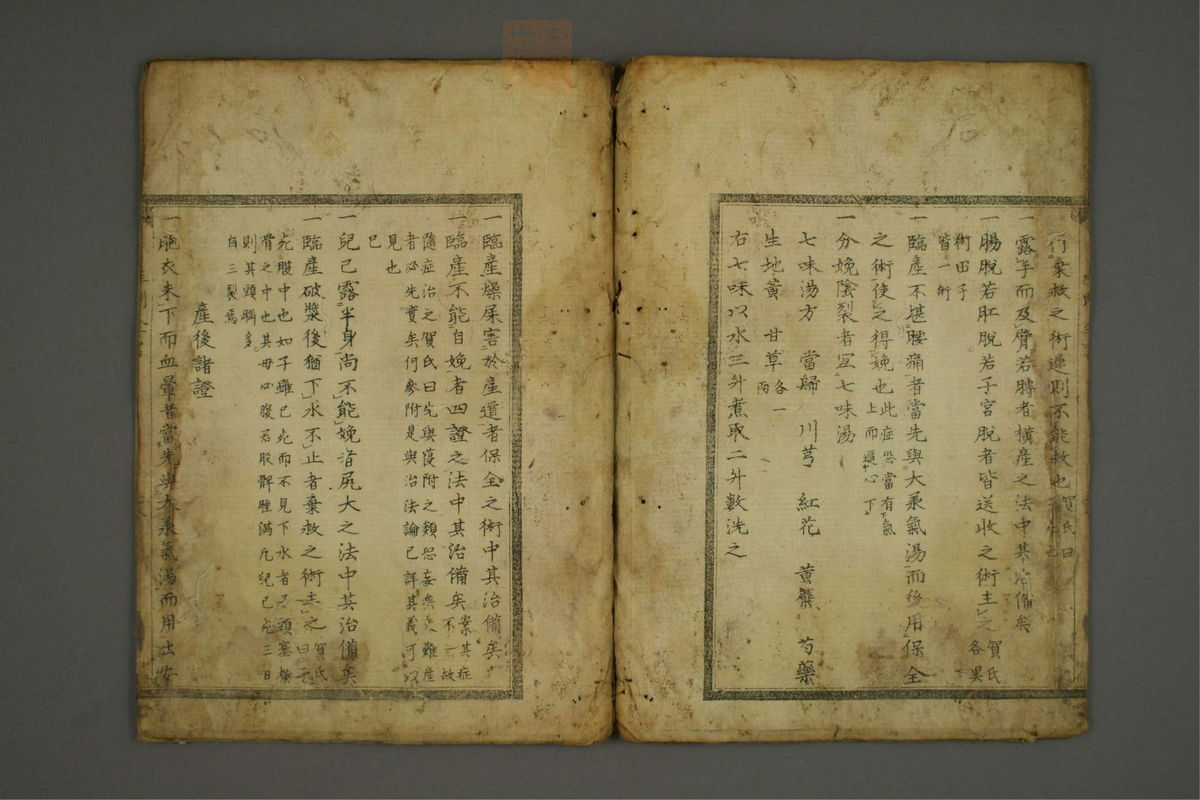 行棄救之術遲則不能救也賀氏曰
一露手而及臂若髆者橫産之法中其治備矣
一腸脫若肛脫若子宮脫者皆送收之術主之賀氏各異
術田子皆一術
一臨産不堪腰痛者當先與大承氣湯而後用保全
之術使之得娩也此症恐當有氣上而逼心下
一分娩陰裂者宜七味湯
七味湯方　當歸　川芎　紅花　黄蘗　芍藥
生地黄　甘草各一兩
右七味以水三升煮取二升數洗之
一臨産燥屎害於産道者保全之術中其治備矣
一臨産不能自娩者四證之法中其治備矣案其症不一故
隨症治之賀氏曰先與蔆附之類恐妄矣難産
者必先實矣何參附是與治法論已詳其義可以
見也
已
一兒已露半身尚不能娩者尻大之法中其治備矣
一臨産破漿後猶下水不止者棄救之術主之賀氏曰子
死腹中也如子雖已死而不見下水者已頭塞橫
骨之中也其母必腹若股髀腫滿凡兒已死三日
則其頭腦多
自三裂焉
産後諸證
一胞衣未下而血暈者當先與大承氣湯而用出